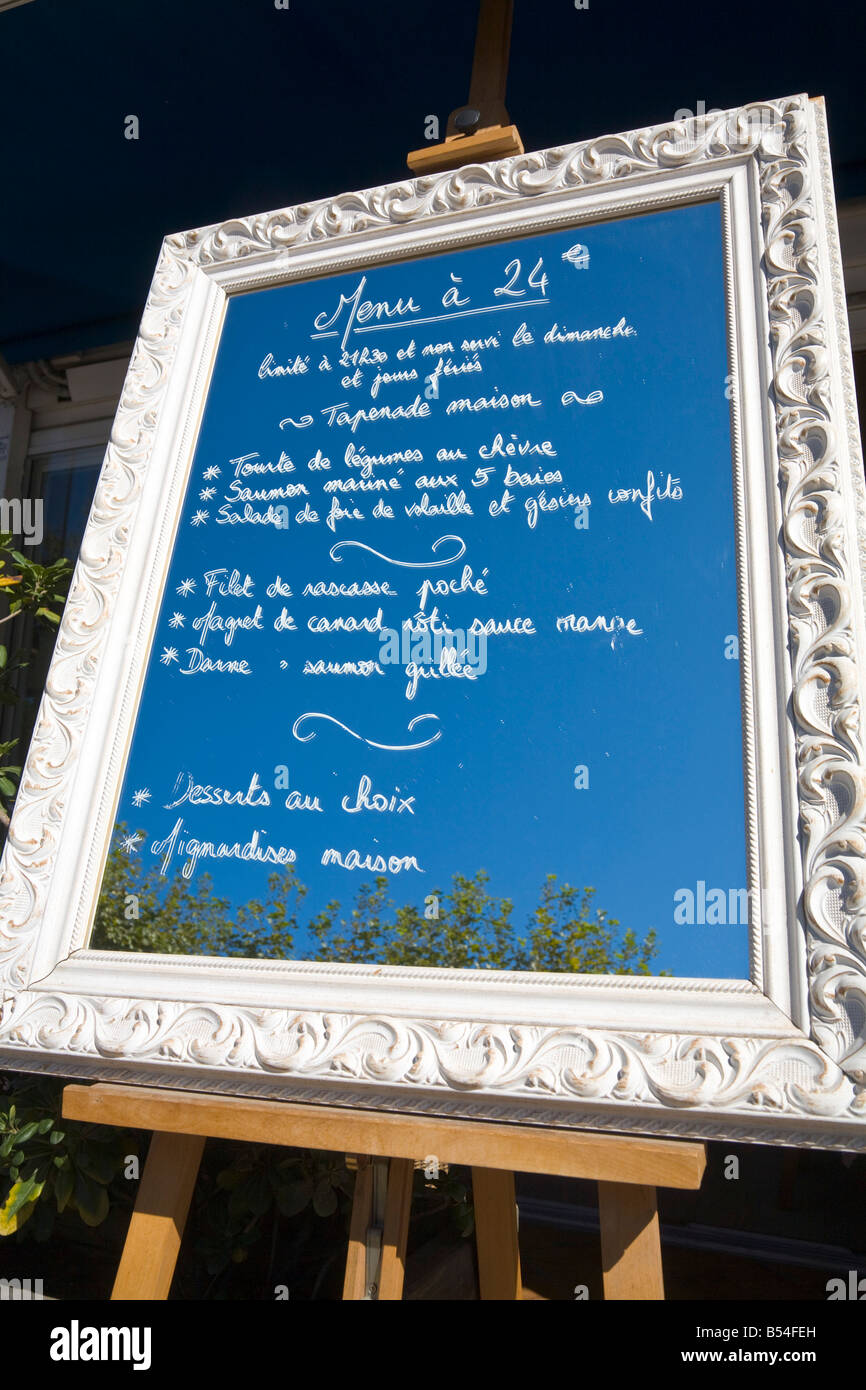 Menu à 24 €
limité à 21h30 et non servi le dimanche
et jours fériés
~ Tapenade maison ~
* Tourte de légumes au chèvre
* Saumon mariné aux 5 baies
* Salade de foie de volaille et gésiers confits
* Filet de rascasse poché
* Magret de canard rôti sauce
* Darne saumon grillée
* Desserts au choix
* Mignardises maison
alamy
Image ID: B54FEH
www.alamy.com